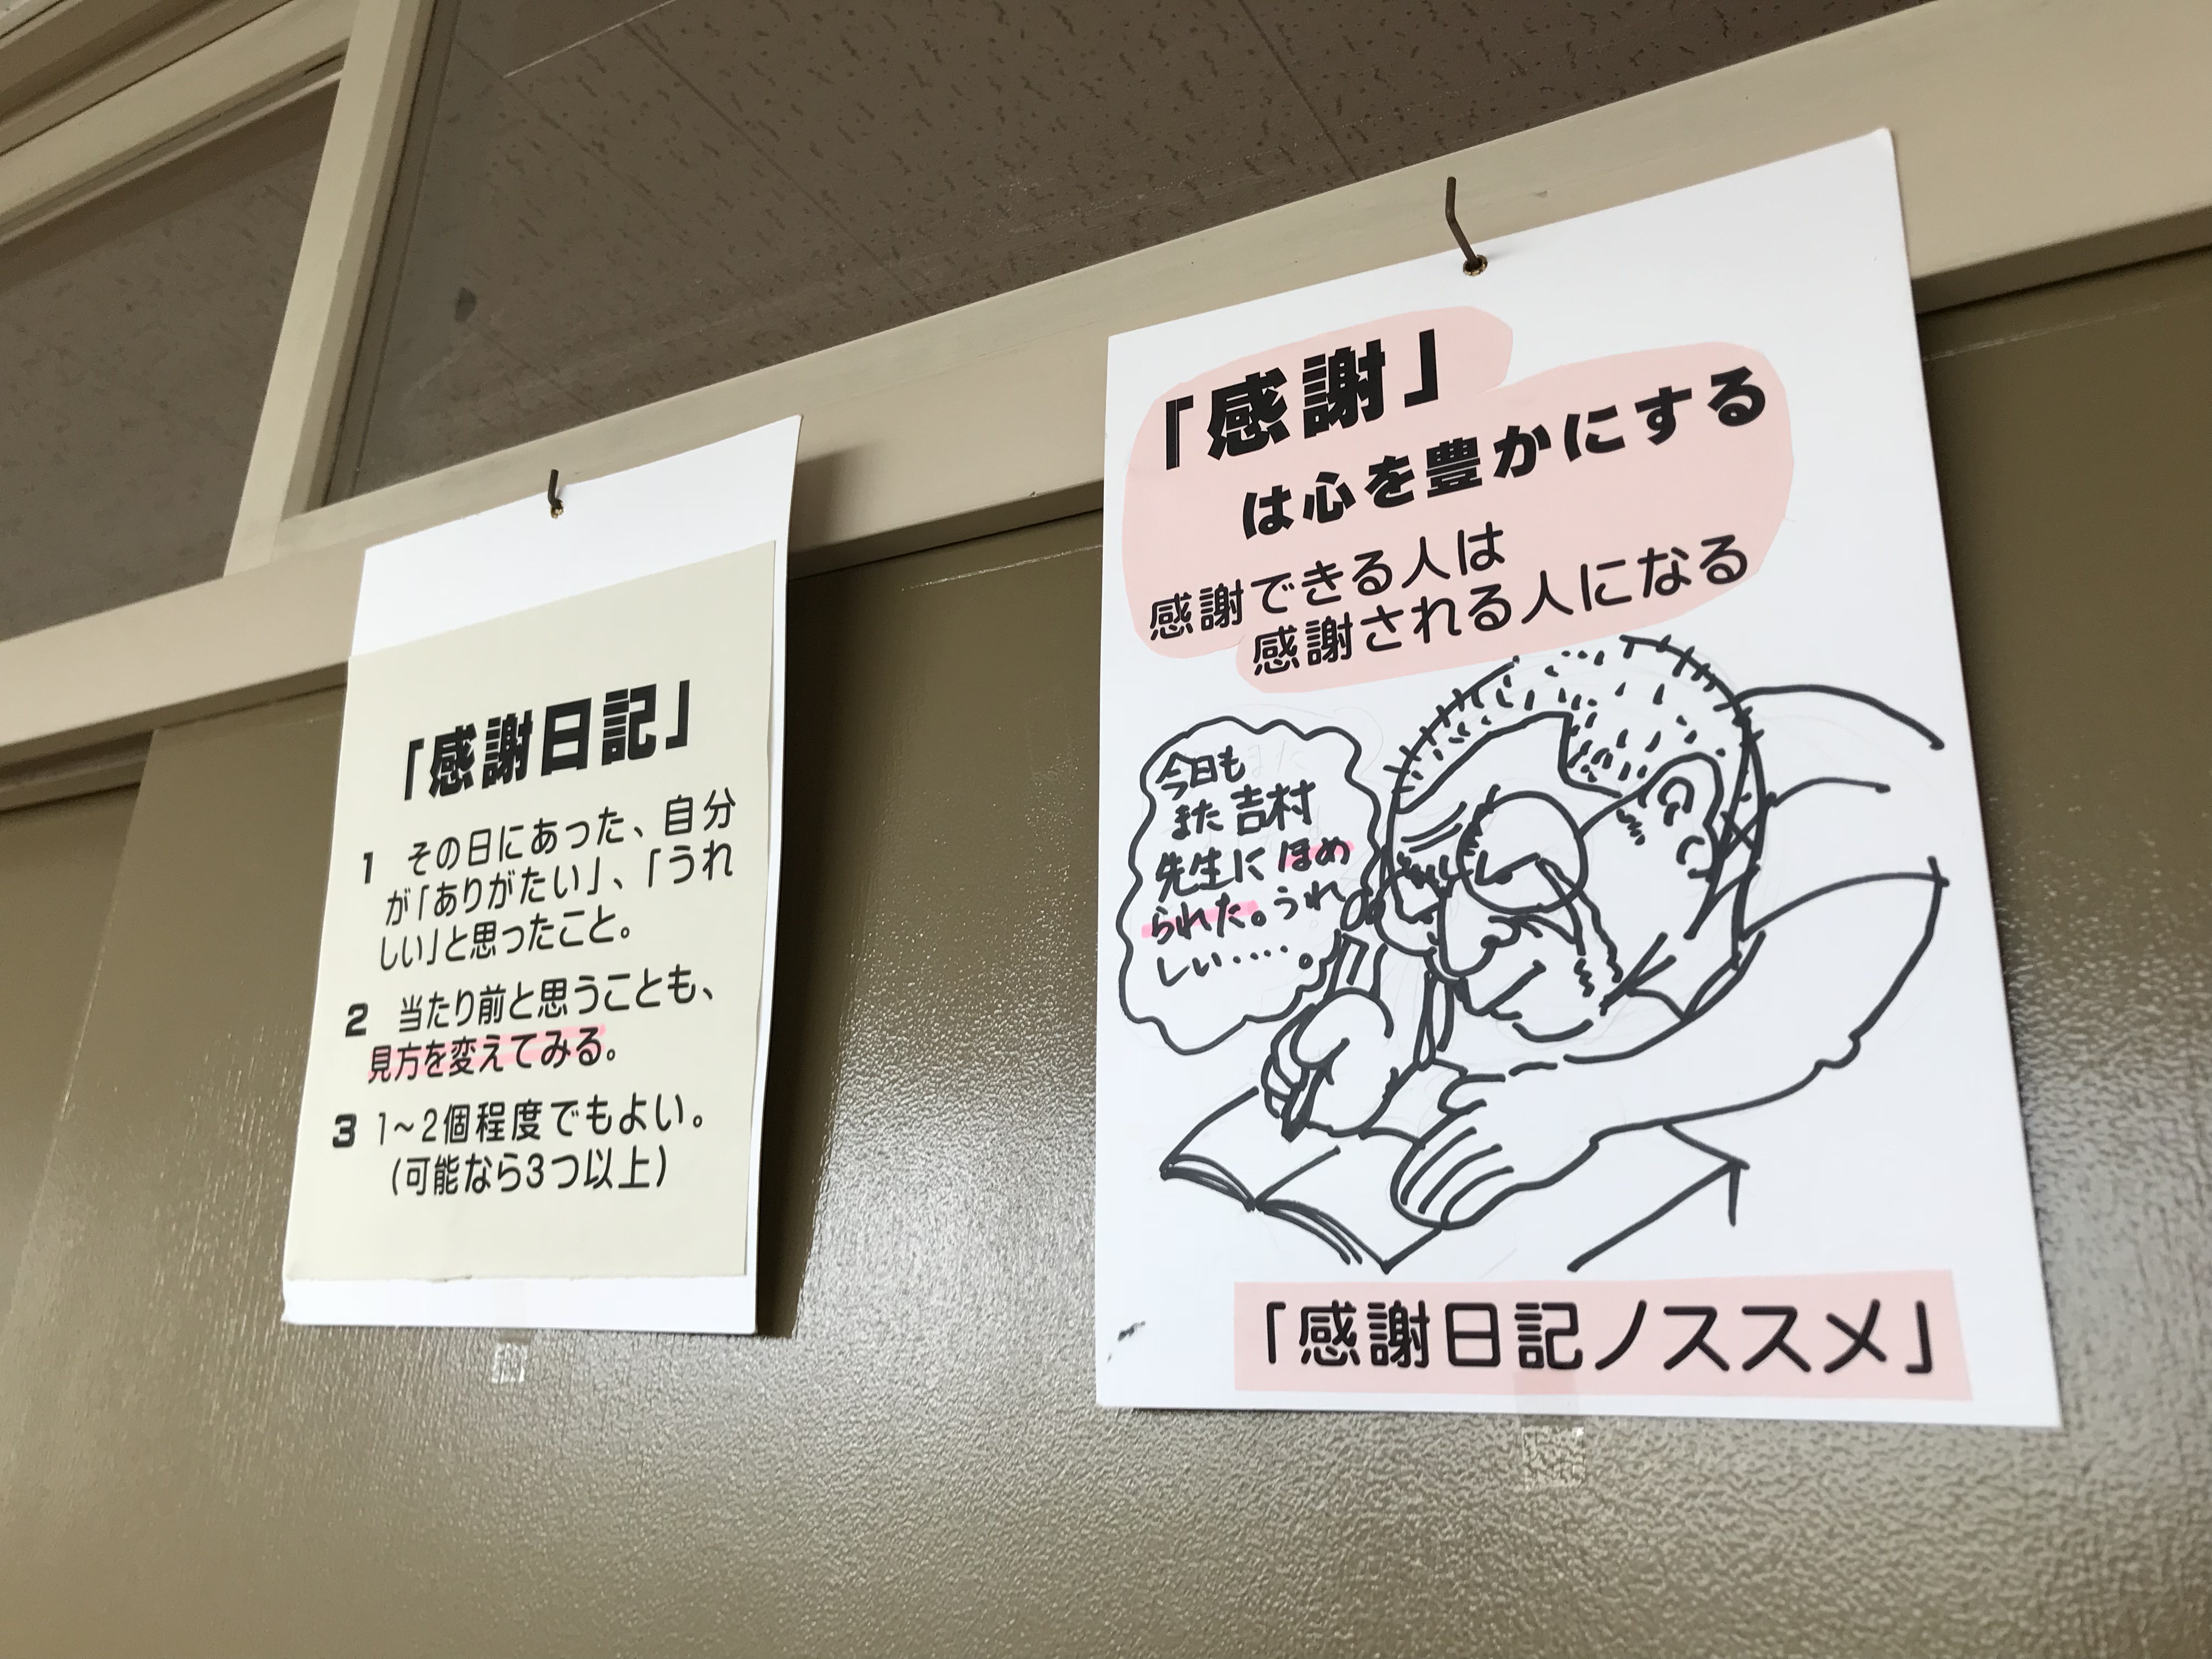 「感謝日記」
1 その日にあった、自分
が「ありがたい」、「うれ
しい」と思ったこと。
2 当たり前と思うことも、
見方を変えてみる。
3 1～2個程度でもよい。
(可能なら3つ以上)
「感謝」
は心を豊かにする
感謝できる人は
感謝される人になる
今日も
また吉村
先生にほめ
られた。うれ
しい‥‥。
「感謝日記ノススメ」